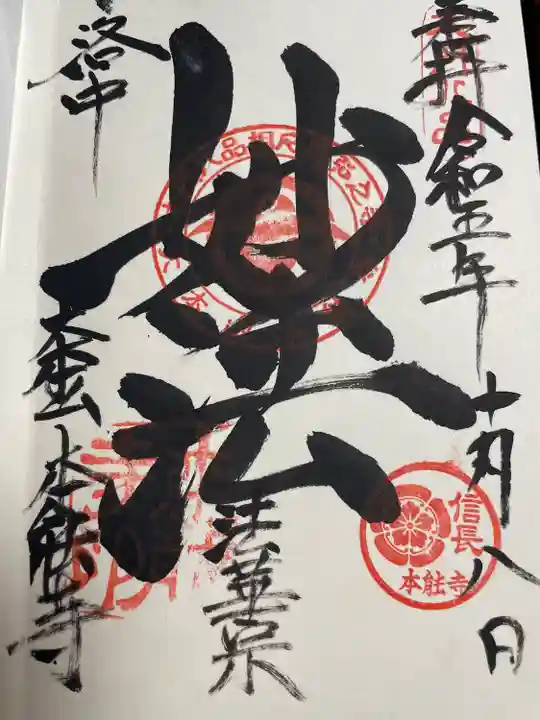 奉拝 令和五年 十月八日
妙法
法華宗
洛中
大本山 本能寺
信長
本能寺